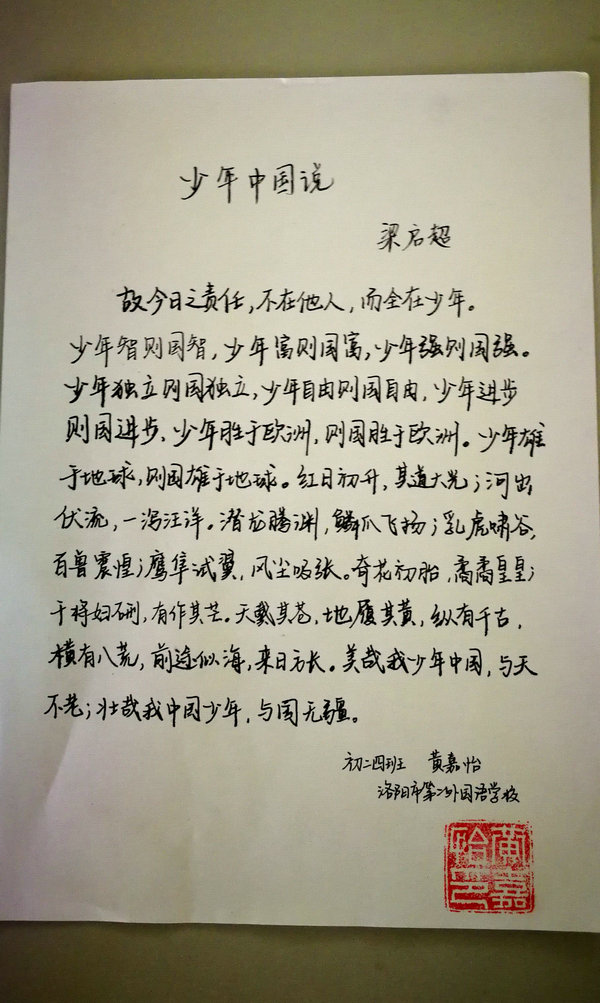 少年中国说
梁启超
故今日之责任,不在他人,而全在少年。
少年智则国智,少年富则国富,少年强则国强。
少年独立则国独立,少年自由则国自由,少年进步
则国进步,少年胜于欧洲,则国胜于欧洲。少年雄
于地球,则国雄于地球。红日初升,其道大光;河出
伏流,一泻汪洋。潜龙腾渊,鳞爪飞扬;乳虎啸谷,
百兽震惶;鹰隼试翼,风尘吸张。奇花初胎,矞矞皇皇;
干将发硎,有作其芒。天戴其苍,地履其黄,纵有千古,
横有八荒,前途似海,来日方长。美哉我少年中国,与天
不老;壮哉我中国少年,与国无疆。
初二四班 黄嘉怡
洛阳市第二外国语学校
黄嘉